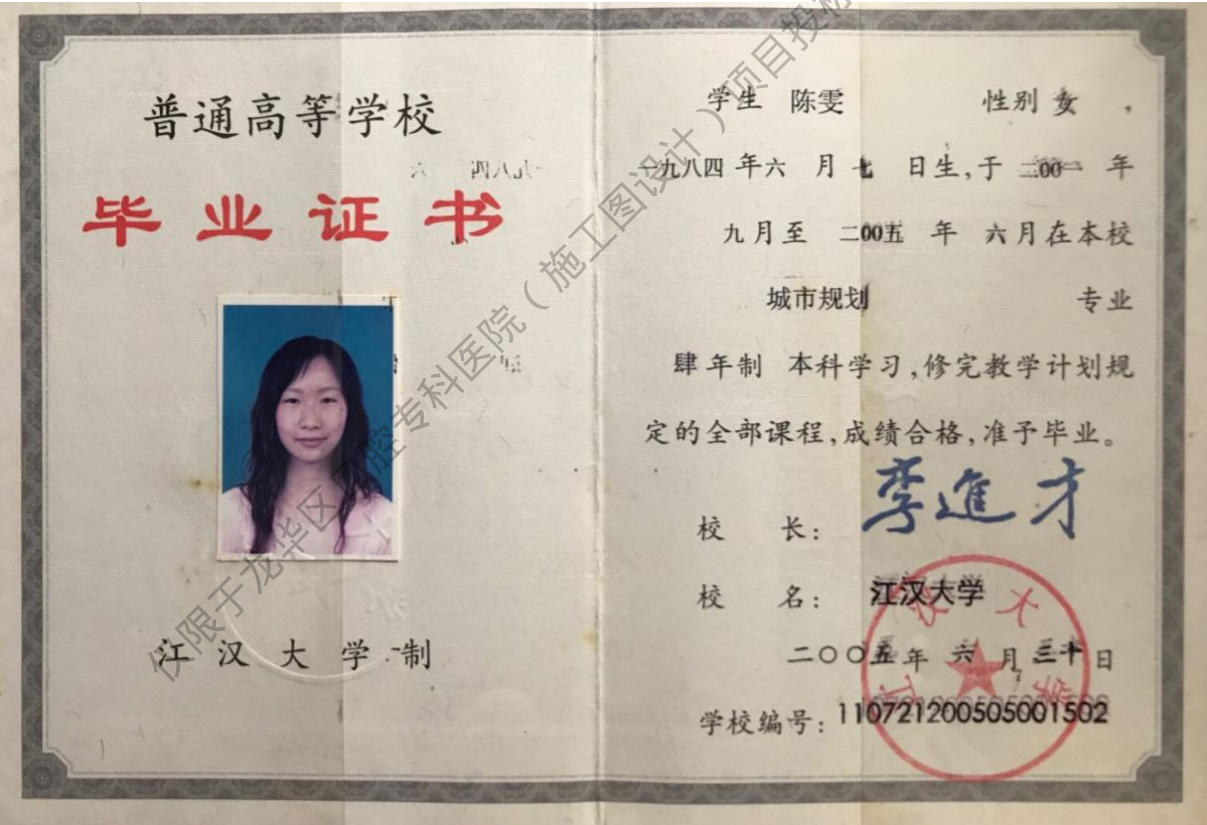 普通高等学校
毕业证书
江汉大学制
学生 陈雯 性别 女 ，
一九八四 年 六 月 七 日生，于 二00一 年
九月至 二00五 年 六月在本校
城市规划 专业
肆年制 本科学习，修完教学计划规
定的全部课程，成绩合格，准予毕业。
校 长： 李進才
校 名： 江汉大学
二〇〇五年 六 月 三十 日
学校编号：110721200505001502
江汉大学
仅限于龙华区口腔专科医院（施工图设计）项目投标